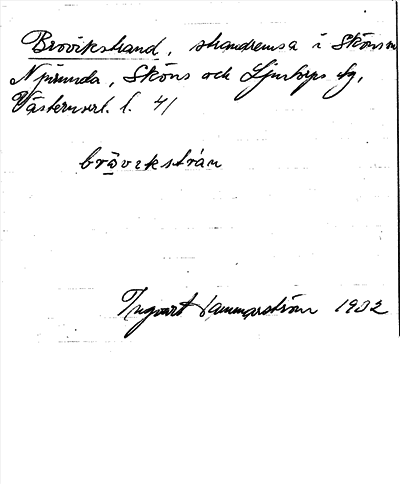 Brovikstrand, strandremsa i Sköns
Njurunda, Sköns och Ljustorps sg,
Västernorrl. l. 41
brovikstrån
Ingvart Hammarström 1932